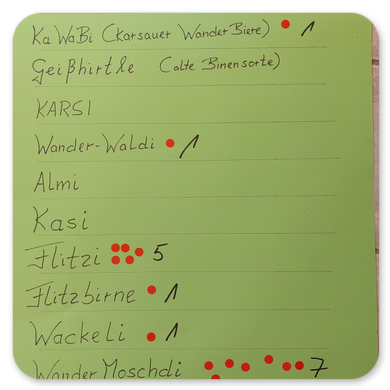 Ka WaBi (Karsauer Wander Biere) 1
Geißhirtle (alte Binensorte)
KARSI
Wander-Waldi 1
Almi
Kasi
Flitzi 5
Flitzbirne 1
Wackeli 1
Wander Moschdi 7